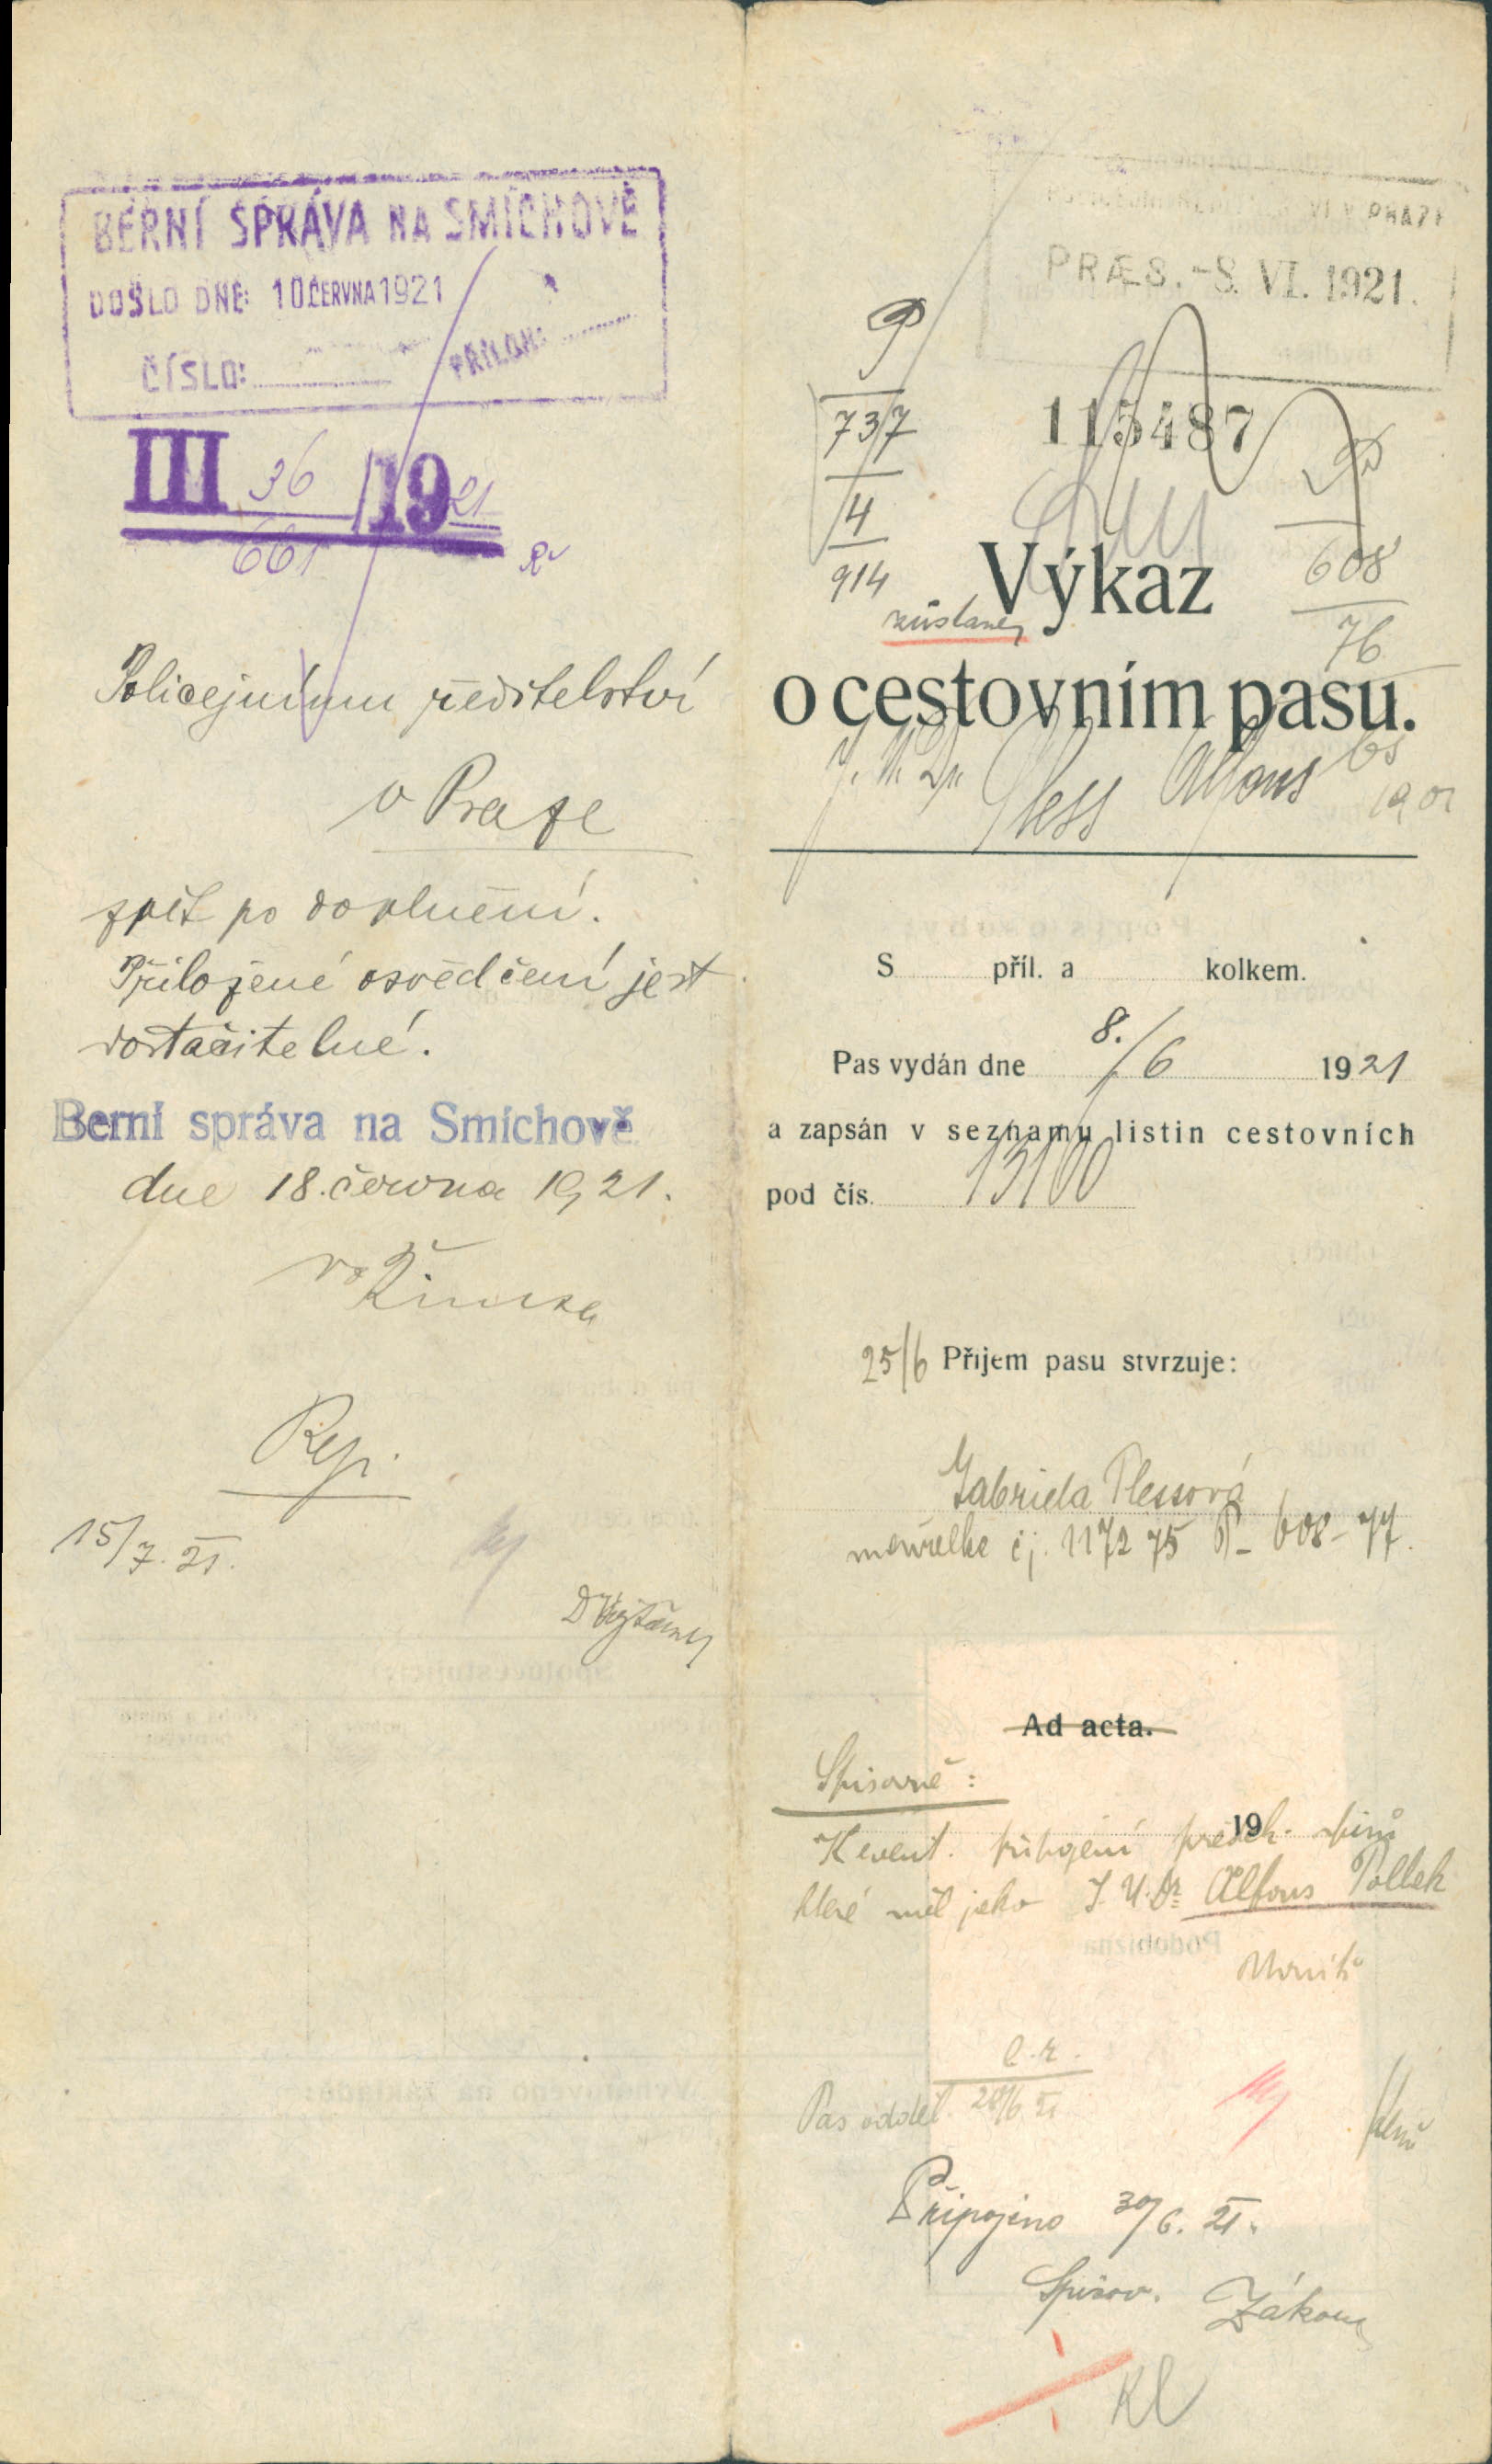 BERNÍ SPRÁVA NA SMÍCHOVĚ
DOŠLO DNE: 10 ČERVNA 1921
ČÍSLO: PŘÍLOH:
III 36 / 19 21
661
Policejnímu ředitelství
v Praze
zpět po doplnění.
Přiložené osvědčení jest
dostačitelné.
Berní správa na Smíchově
dne 18. června 1921.
Rep.
15/7. 21.
VI V PRAZE
PRÆS. -8. VI. 1921.
737
4
914
115487
608
76
Výkaz
o cestovním pasu.
J. U. Dr. Pless Alfons
S příl. a kolkem.
Pas vydán dne 8./6 1921
a zapsán v seznamu listin cestovních
pod čís. 13100
25/6 Příjem pasu stvrzuje:
Gabriela Plessová
manželka čj. 117275 P- 608-77.
Ad acta.
Spisovně:
19
K event. připojení předch. spisů
které měl jako J. U. Dr. Alfons Pollak
Pas odděl. 28/6 21
Připojeno 30/6. 21.
Spisov.
Kl